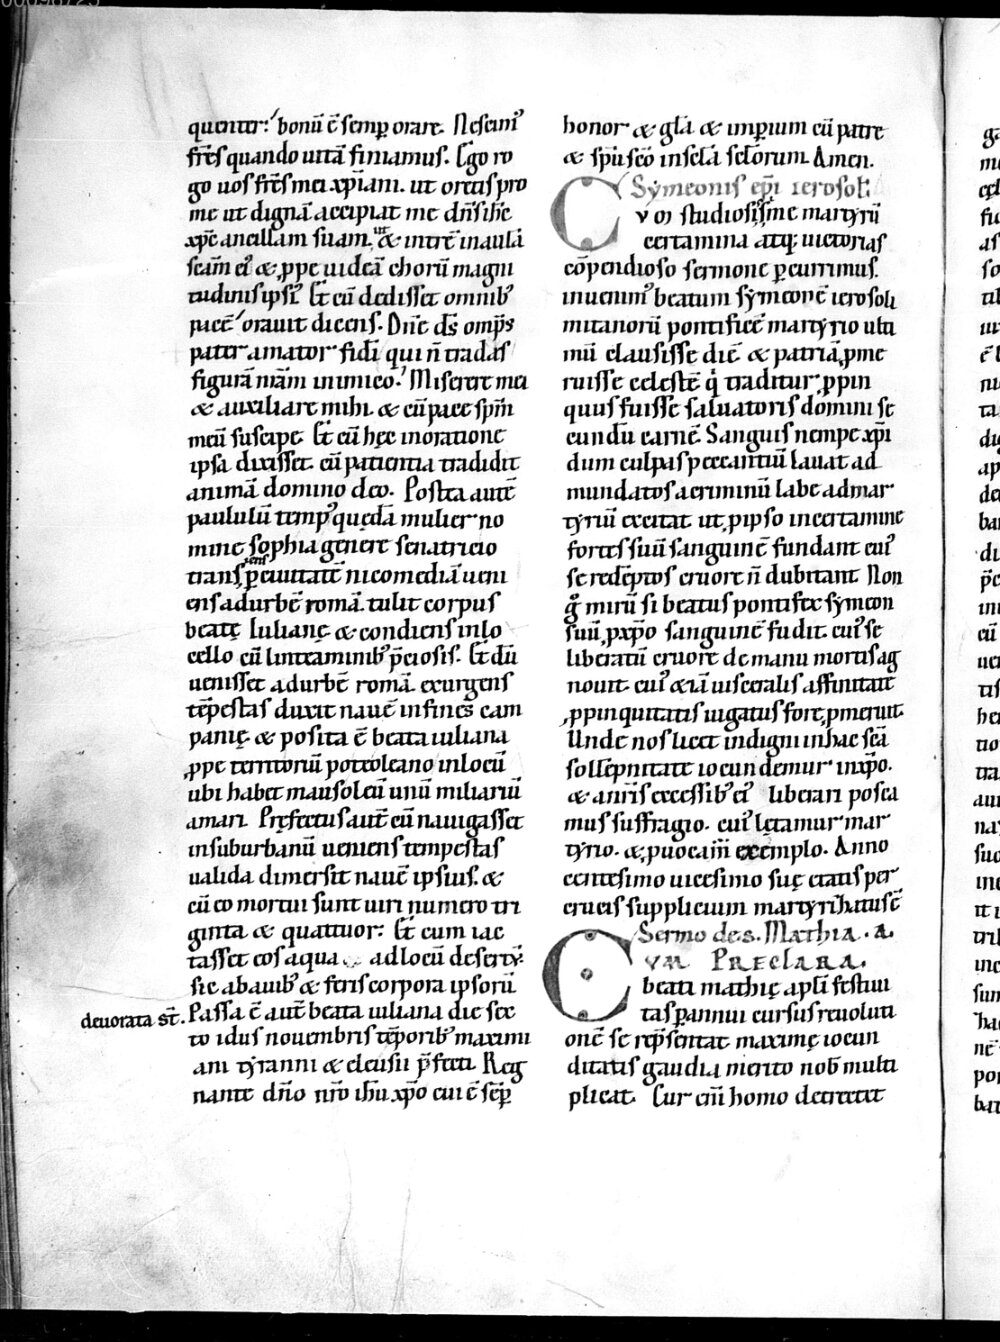 quenter: bonū ē semp̄ orare. Nescim᾽
fr̄es quando uitā finiamus. Ego ro
go uos fr̄es mei xp̄iani. ut oretis pro
me ut dignā accipiat me dn̄s ih̄c
xp̄c ancillam suam, ut & intrē in aulā
sc̄am ei᾽ & ꝓpe uideā chorū magni
tudinis ipsi᾽. Et cū dedisset omnib᾽
pacē orauit dicens. Dn̄e ds̄ omp̄s
pater amator fidei qui n̄ tradas
figurā n̄am inimico. Miserere mei
& auxiliare mihi. & cū pace sp̄m
meū suscipe. Et cū hęc in oratione
ipsa dixisset. cū patientia tradidit
animā domino deo. Postea autē
paululū temp᾽ quędā mulier no
mine sophia genere senatricio
transiens p̄ ciuitatē nicomediā ueni
ens ad urbē romā. tulit corpus
beatę Iulianę. & condiens in lo
cello cū linteaminib᾽ p̄ciosis. Et dū
uenisset ad urbē romā. exurgens
tēpestas duxit nauē in fines cam
panię. & posita ē beata iuliana
ꝓpe territoriū poteoleano in locū
ubi habet mausoleū unū miliariū
a mari. Pręfectus autē cū nauigasset
in suburbanū ueniens tempestas
ualida dimersit nauē ipsius. &
cū eo mortui sunt uiri numero tri
ginta & quattuor: Et cum iac
tasset eos aqua ad locū desertū.
sic ab auib᾽ & feris corpora ipsorū
deuorata sī. Passa ē autē beata iuliana die sex
to idus nouembris tēporib᾽ maximi
ani tyranni & eleusii p̄fecti. Reg
nante dn̄o nr̄o ih̄u xp̄o cui ē sēp̄
honor & gl̄a & imp̄ium cū patre
& sp̄u sc̄o in sc̄la sc̄lorum. Amen.
Symeonis ep̄i ierosol:
Cvm studiosissime martyrū
certamina atq; uictorias
cōpendioso sermone p̄currimus.
inuenim᾽ beatum symeonē ierosoli
mitanorū pontificē martyrio ulti
mū clausisse diē & patriā ꝓme
ruisse celestē q̇ traditur ꝓpin
quus fuisse saluatoris domini se
cundū carnē. Sanguis nempe xp̄i
dum culpas peccantiū lauat ad
mundatos a criminū labe ad mar
tyriū excitat ut ꝓ ipso in certamine
fortes suū sanguinē fundant cui᾽
se redēptos cruore n̄ dubitant. Non
g̊ mirū si beatus pontifex symeon
suū ꝓ xp̄o sanguinē fudit. cui᾽ se
liberatū cruore de manu mortis ag
nouit. cui᾽ &iā uisceralis affinitate
ꝓpinquitatis iugatus fore ꝓmeruit.
Unde nos licet indigni in hac sc̄a
sollēpnitate iocundemur in xp̄o.
& an̄ris excessib᾽ ei᾽ liberari posca
mus suffragio. cui᾽ lętamur mar
tyrio. & ꝓuocam᾽ exemplo. Anno
centesimo uicesimo suę etatis per
crucis supplicium martyrihatus ē
Sermo de s. Mathia. a.
CVM PRECLARA.
beati mathię apl̄i festiui
tas p̄ annui cursus reuoluti
onē se rep̄sentat maximę iocun
ditatis gaudia merito nob᾽ multi
plicat. Cur eni homo decreret